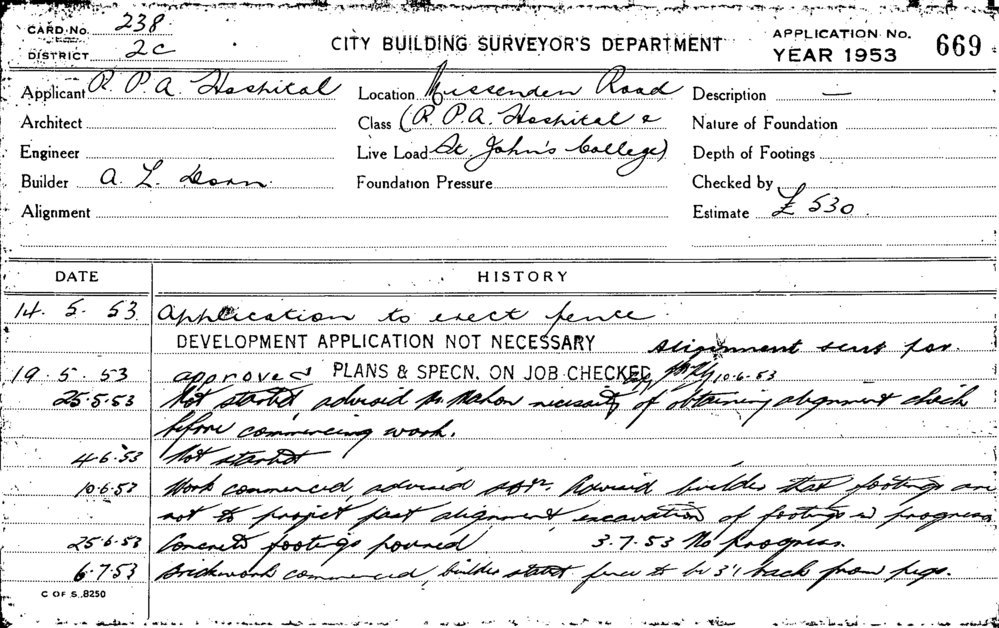 CARD No. 238
DISTRICT 2C
CITY BUILDING SURVEYOR'S DEPARTMENT
APPLICATION No. 669
YEAR 1953
Applicant R. P. A. Hospital
Location Missenden Road
Description —
Architect
Class (R. P. A. Hospital &
Nature of Foundation
Engineer
Live Load St. John's College)
Depth of Footings
Builder A. L. Dorn
Foundation Pressure
Checked by
Alignment
Estimate £ 530
DATE HISTORY
14. 5. 53 Application to erect fence
DEVELOPMENT APPLICATION NOT NECESSARY Alignment sent for.
19. 5. 53 approved PLANS & SPECN. ON JOB CHECKED 10.6.53
25.5.53 Not started, advised Mr. Mahon necessity of obtaining alignment check
before commencing work.
4.6.53 Not started
10.6.53 Work commenced, advised Advised builder that footings are
not to project past alignment, excavation of footings in progress
25.6.53 Concrete footings poured 3.7.53 No Progress.
6.7.53 Brickwork commenced, builder stated fence to be 3" back from pegs.
C OF S. 8250